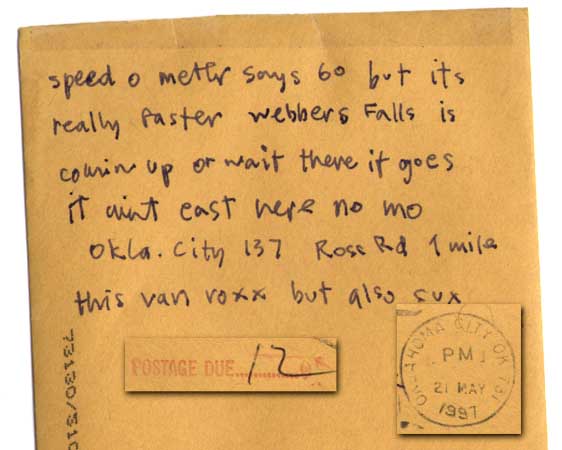 speed o meter says 60 but its
really faster webbers Falls is
comin up or wait there it goes
it aint east here no mo
Okla. City 137 Ross Rd 1 mile
this van roxx but also sux
POSTAGE DUE 12
OKLAHOMA CITY OK 731
PM
21 MAY
1997